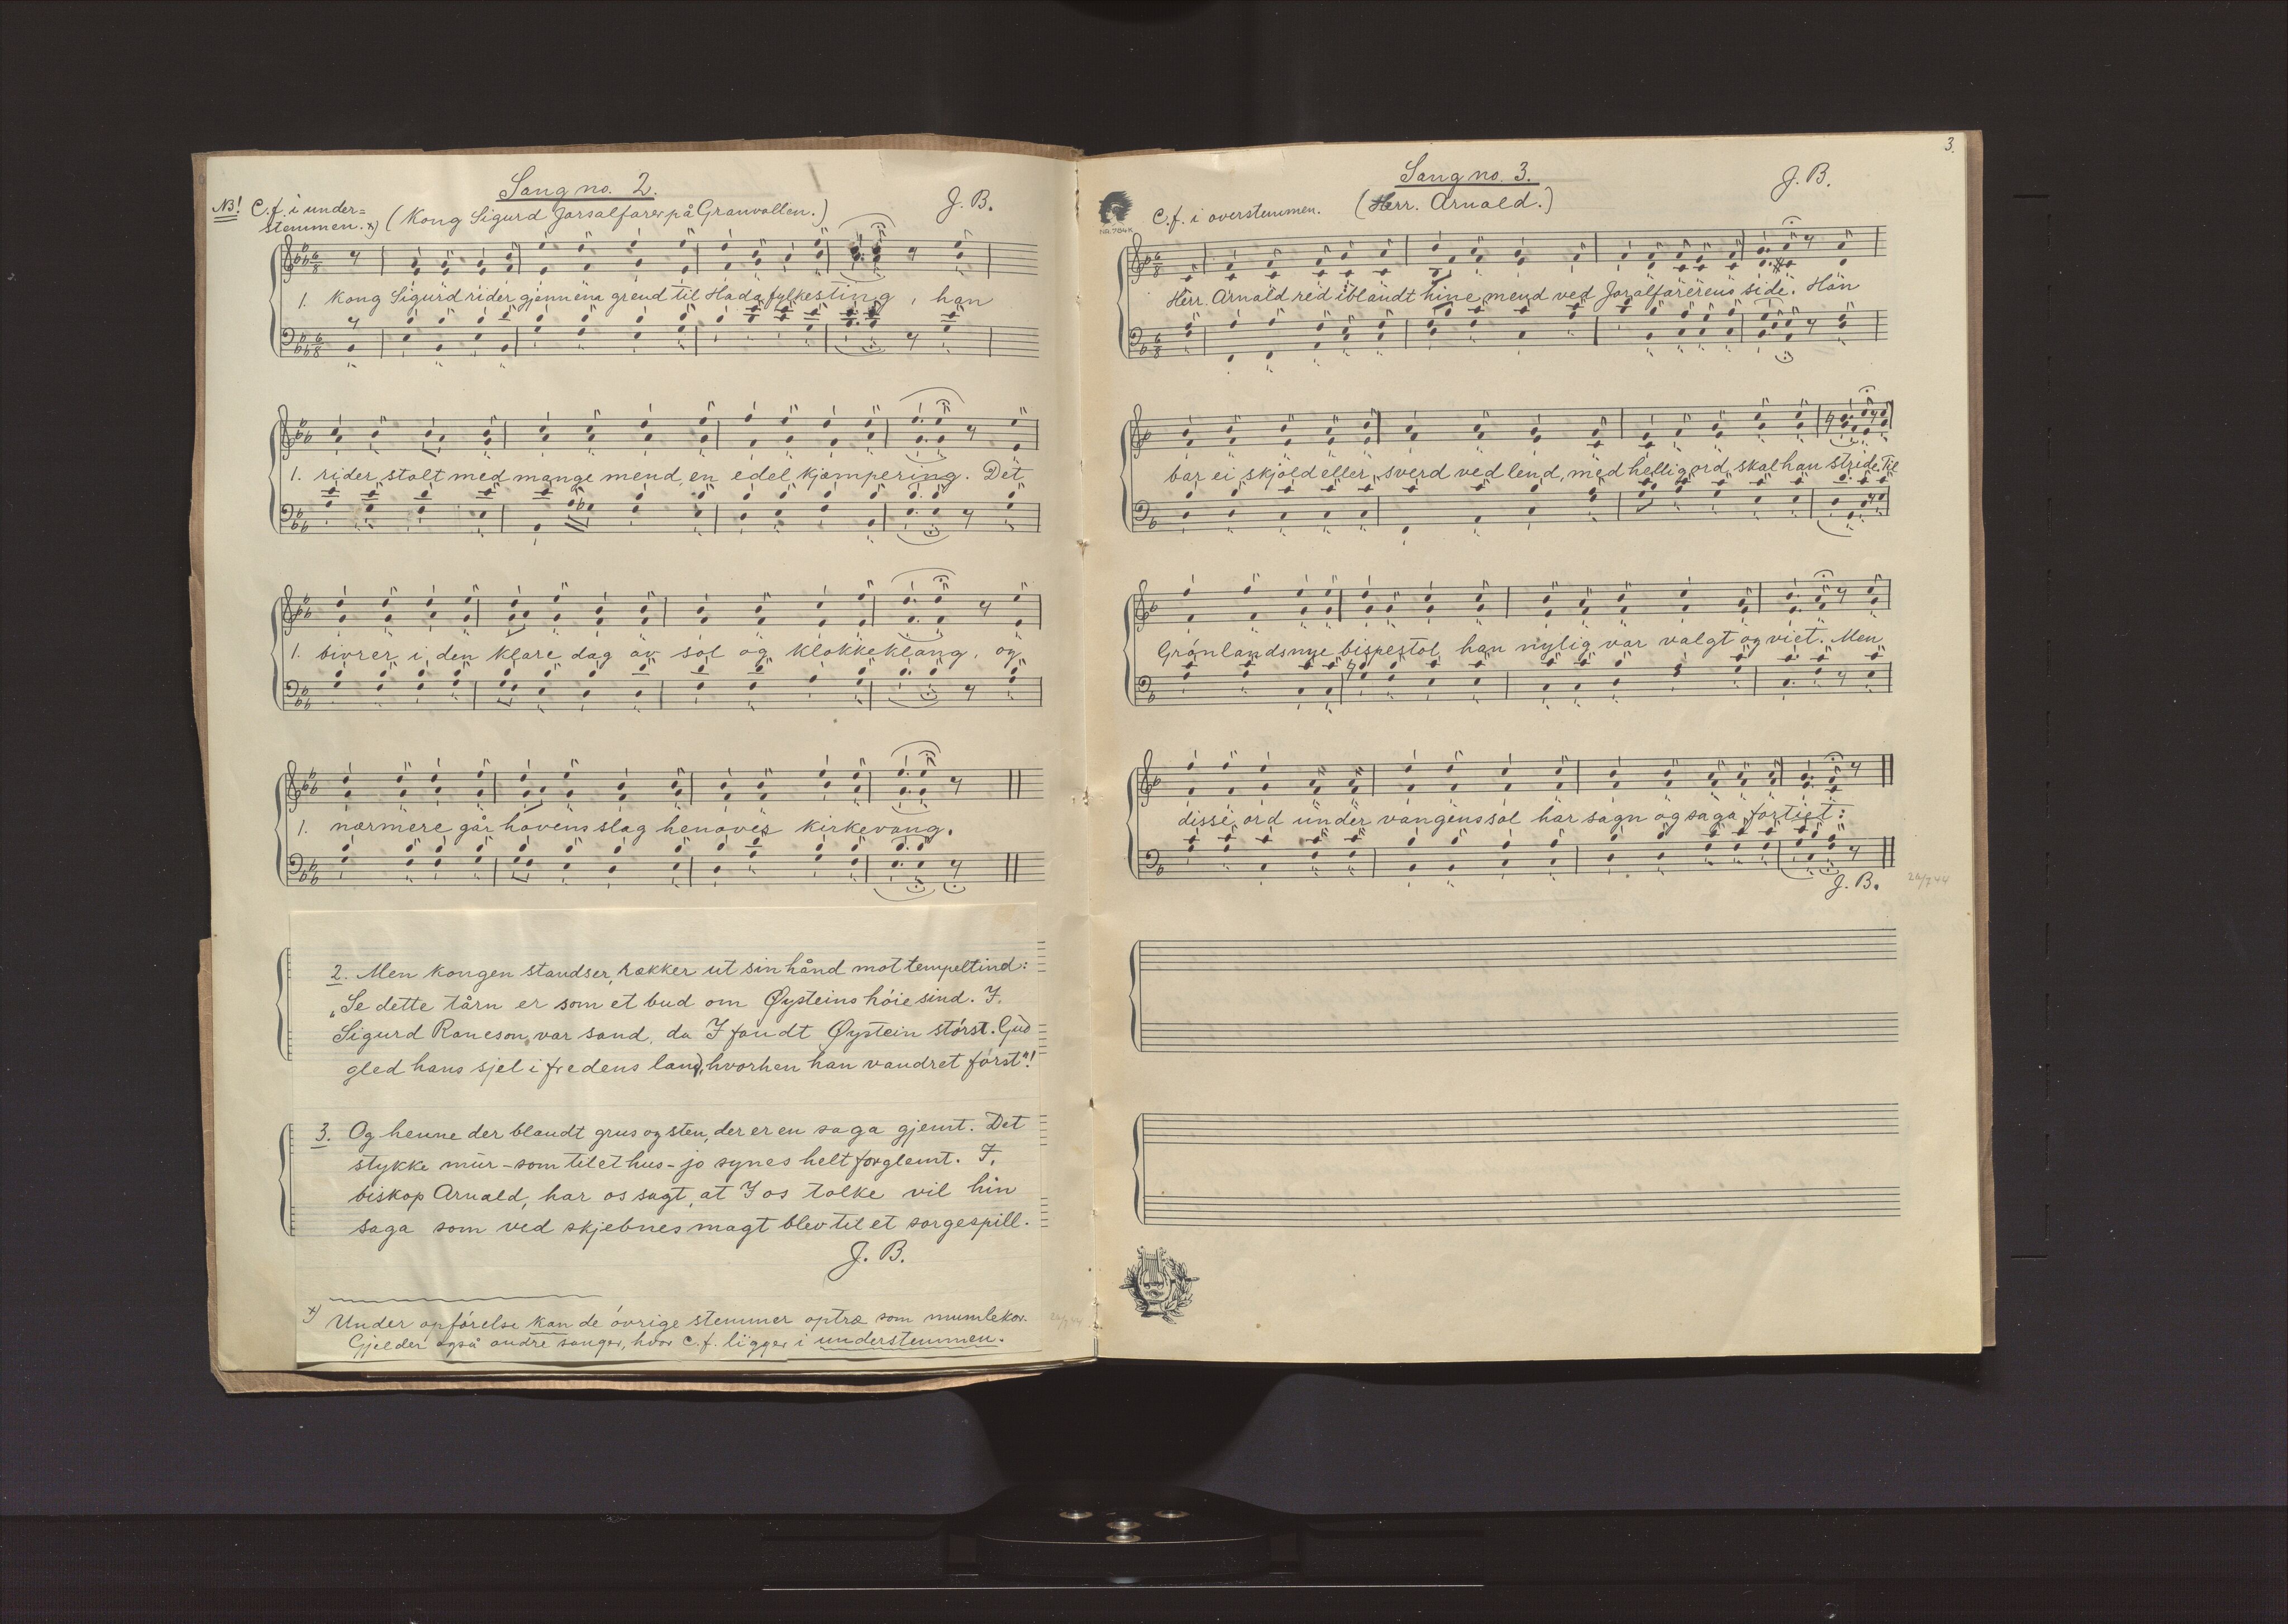 Sang no. 2.
NB! C.f. i under=
stemmen. x) (Kong Sigurd Jorsalfarer på Granvollen.)
J. B.
1. Kong Sigurd rider gjennem grend til Hada fylkesting, han
1. rider stolt med mange mend, en edel kjæmpering. Det
1. bivrer i den klare dag av sol og klokkeklang, og
1. nærmere går hovens slag henover kirkevang.
2. Men kongen standser, rækker ut sin hånd mot tempeltind:
"Se dette tårn er som et bud om Øysteins høie sind. I,
Sigurd Raneson, var sand, da I fandt Øystein størst. Gud
gled hans sjel i fredens land, hvorhen han vandret først"!
3. Og henne der blandt grus og sten, der er en saga gjemt. Det
stykke mur – som til et hus – jo synes helt forglemt. I,
biskop Arnald, har os sagt, at I os tolke vil hin
saga som ved skjebnes magt blev til et sørgespill.
J. B.
x) Under opførelse kan de øvrige stemmer optræ som mumlekor.
Gjelder også andre sanger, hvor C.f. ligger i understemmen.
3.
Sang no. 3.
J. B.
C.f. i overstemmen. (Herr. Arnald.)
No. 784 K
Herr. Arnald red iblandt hine mend ved Jorsalfarerens side. Han
bar ei skjold eller sverd ved lend, med hellig ord skal han stride. Til
Grønlands nye bispestol han nylig var valgt og viet. Men
disse ord under vangens sol har sagn og saga fortiet:
J. B.